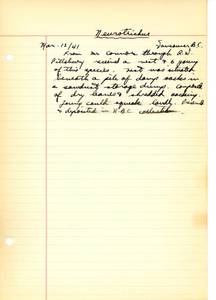 Neurotrichus
Mar. 12/41 Vancouver B.C.
From Mr Connor through R.W.
Pillsbury received a nest & 6 young
of this species. Nest was situated
beneath a pile of damp sacks in
a sandust storage dump. Composed
of dry leaves & shredded sacking
young could squeak loudly.
& deposited in U.B.C. collection.